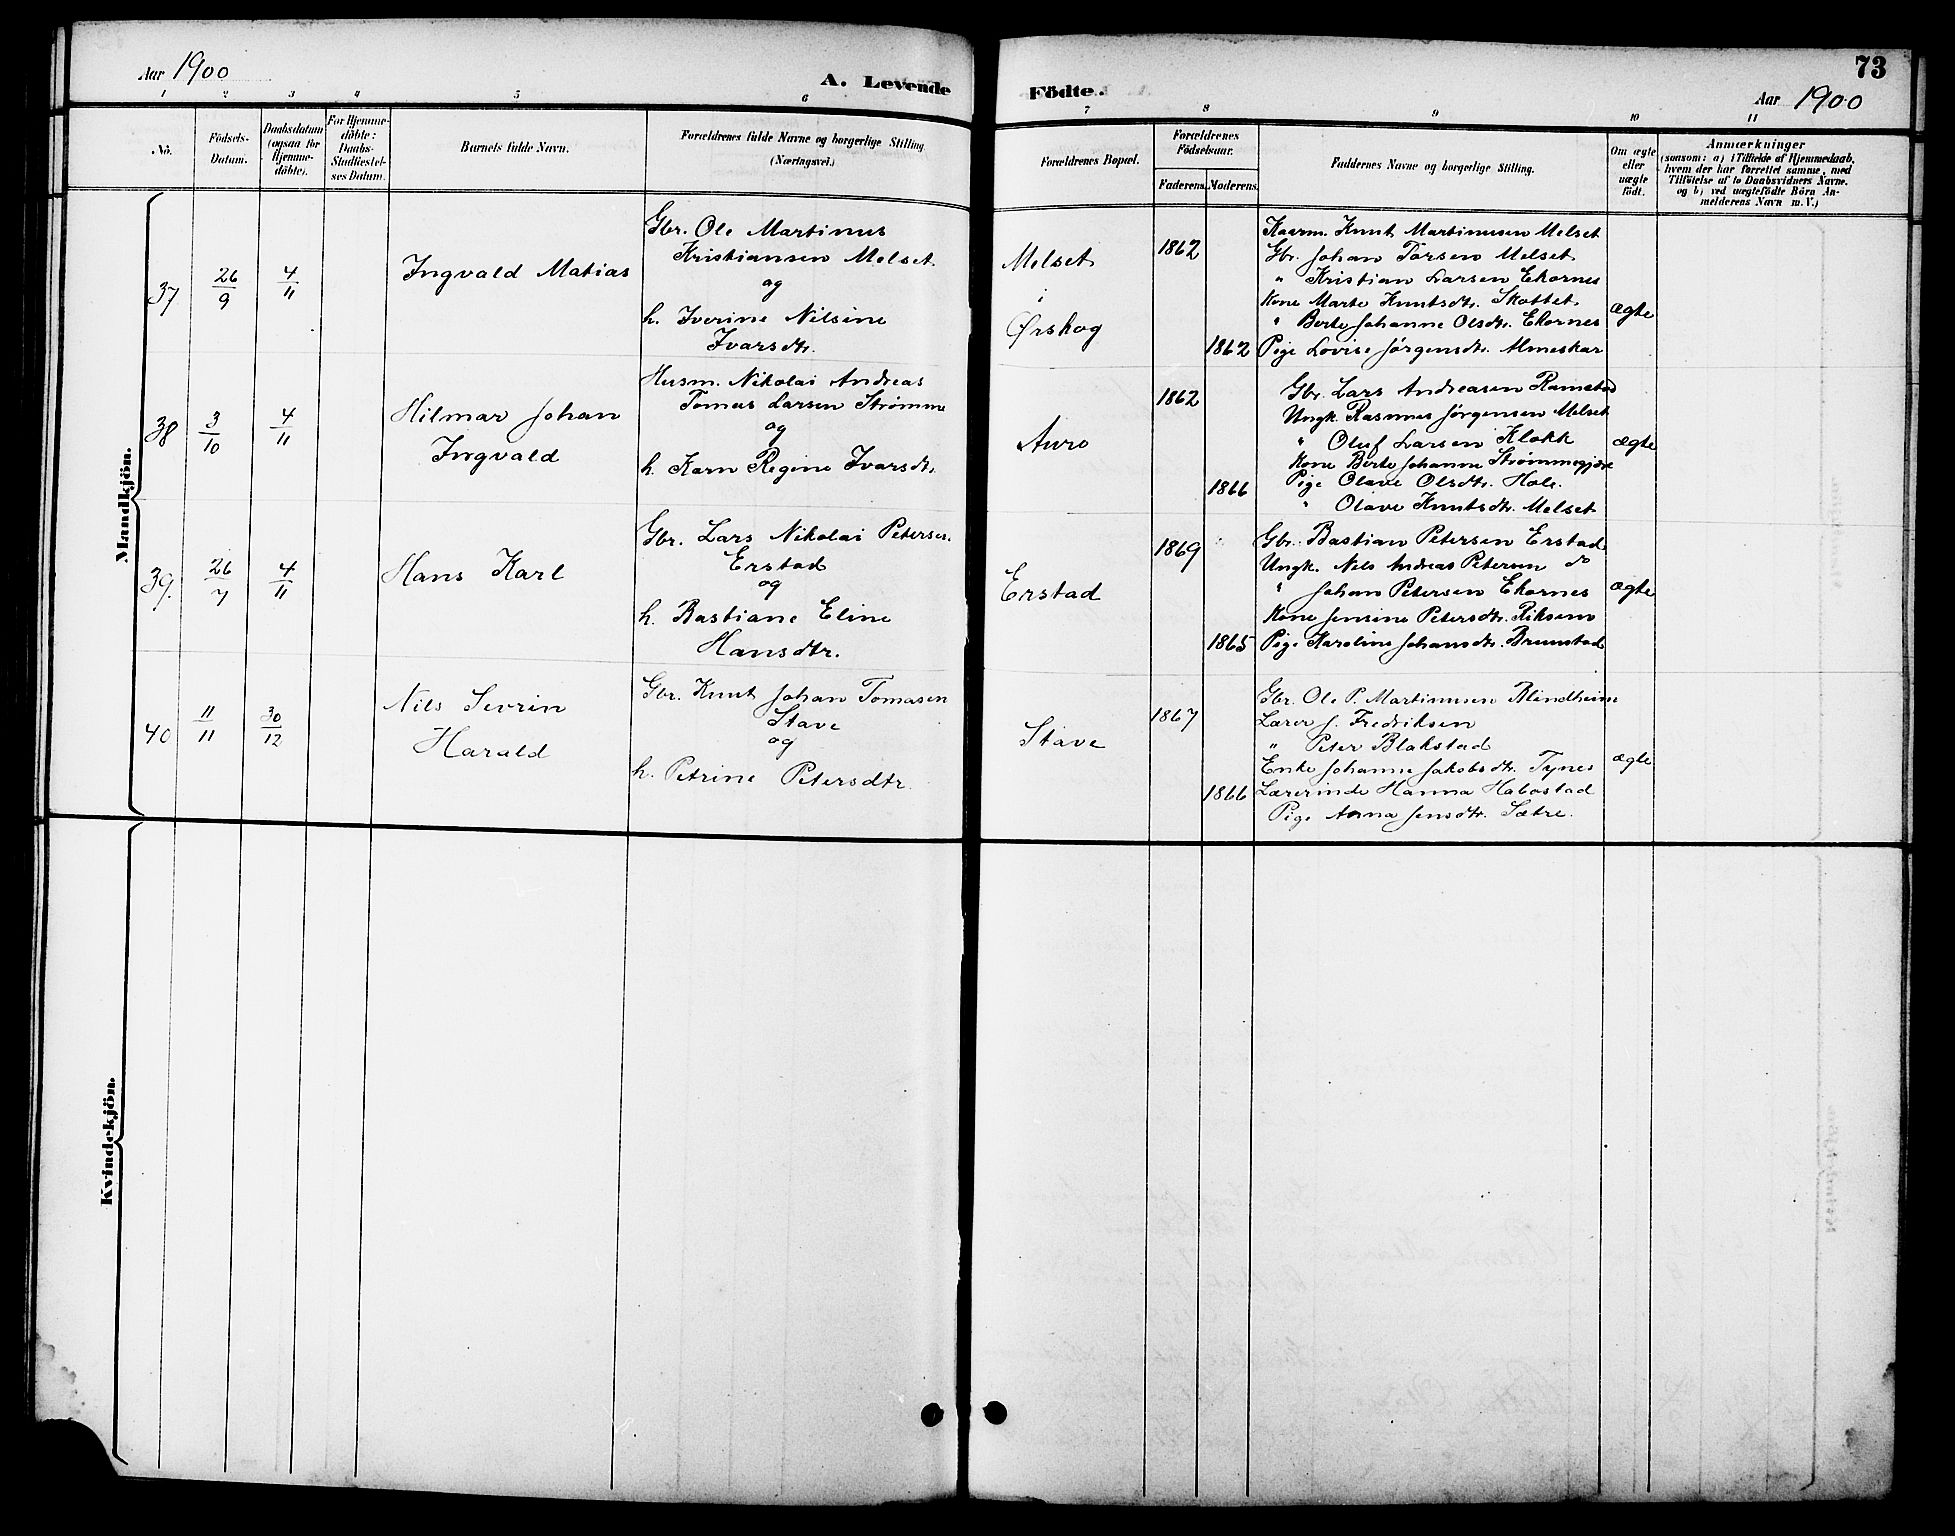 Aar 1900
A. Levende
1 2 3 4 5 6
No.
Födsels-
Datum.
Daabsdatum
(ogsaa for
Hjemme-
döbte).
For Hjemme-
döbte:
Daabs-
Stadfæstel-
ses Datum.
Barnets fulde Navn.
Forældrenes fulde Navne og borgerlige Stilling
(Næringsvei.)
Mandkjön.
37
26/9
4/11
Ingvald Matias
Gbr. Ole Martinus
Kristiansen Melset
og
h. Iverine Nilsine
Ivarsdtr.
38
3/10
4/11
Hilmar Johan
Ingvald
Husm. Nikolai Andreas
Tomas Larsen Strømme
og
h. Karn Regine Ivarsdtr.
39.
26/7
4/11
Hans Karl
Gbr. Lars Nikolai Petersen
Erstad
og
h. Bastiane Eline
Hansdtr.
40
11/11
30/12
Nils Sevrin
Harald
Gbr. Knut Johan Tomasen
Stave
og
h. Petrine Petersdtr.
Kvindekjön.
Födte.
73
Aar 1900
7 8 9 10 11
Forældrenes Bopæl.
Forældrenes
Födselsaar.
Faderens. Moderens.
Faddernes Navne og borgerlige Stilling.
Om ægte
eller
uægte
födt.
Anmærkninger
(saasom: a) i Tilfælde af Hjemmedaab,
hvem der har forrettet samme, med
Tilföielse af to Daabsvidners Navne.
og b) ved uægtefödte Börn An-
melderens Navn m. V.)
Melset
i
Ørskog
1862
1862
Kaarm. Knut Martinusen Melset
Gbr. Johan Torsen Melset
" Kristian Larsen Ekornes
Kone Marte Knutsdtr. Skottet
" Berte Johanne Olsdtr. Ekornes
Pige Lovise Jørgensdtr. Almeskar
ægte
Auro
1862
1866
Gbr. Lars Andreasen Ramstad
Ungk. Rasmus Jørgensen Melset
" Oluf Larsen Klokk
Kone Berte Johanne Strømmegjære
Pige Olave Olsdtr. Hole.
" Olave Knutsdtr. Melset
ægte
Erstad
1869
1865
Gbr. Bastian Petersen Erstad
Ungk. Nils Andreas Petersen do
" Johan Petersen Ekornes
Kone Jensine Petersdtr. Riksem
Pige Karoline Johansdtr. Brunstad
ægte
Stave
1867
1866
Gbr. Ole P. Martinusen Blindheim
Lærer J. Fredriksen
" Peter Blakstad
Enke Johanne Jakobsdtr. Tynes
Lærerinde Hanna Habostad
Pige Anna Jensdtr. Sætre.
ægte